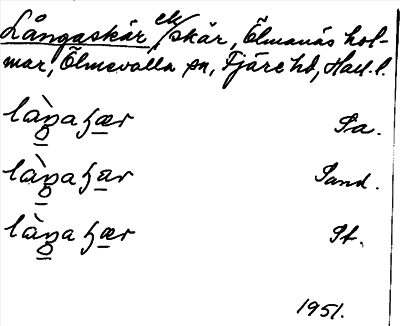 Långaskär el/skär, Ölmanäs hol-
mar, Ölmevalla sn, Fjäre hd, Hall. l.
làŋahær Pa.
làŋahar Sand.
làŋahær St.
1951.